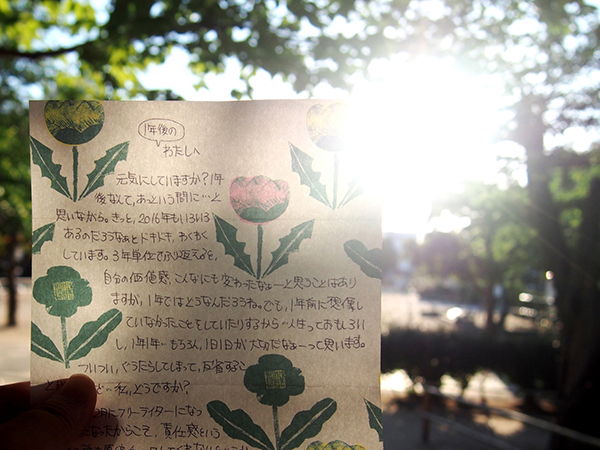 1年後の
わたしへ
元気にしていますか？1年
後なんて、あっという間に…と
思いながら。きっと、2016年もいろいろ
あるのだろうなぁとドキドキ、わくわく
しています。3年単位でふり返ると、
自分の価値感、こんなにも変わったなぁーと思うことはあり
ますが、1年ではどうなんだろうね。でも、1年前に想像し
ていなかったこともしていたりするから…人生っておもしろい
し、1年1年…もちろん、1日1日が大切だなぁーって思います。
ついつい、ぐうたらしてしまって、反省すること
私、どうですか？
月にフリーライターになっ
なったからこそ、責任感という